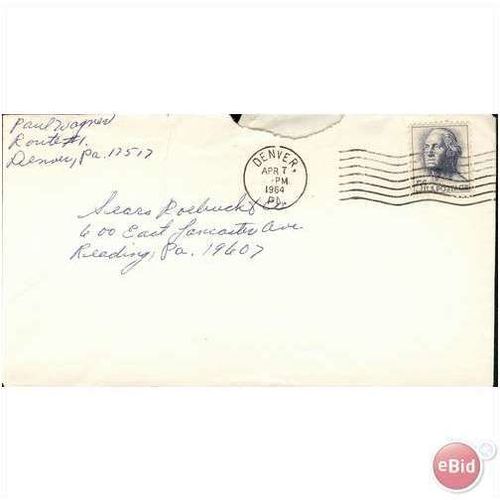 Paul Wagner
Route #1.
Denver, Pa. 17517
DENVER,
APR 7
-PM
1964
PA.
5¢ U.S. POSTAGE
Sears Roebuck & Co.
600 East Lancaster Ave
Reading, Pa. 19607
eBid